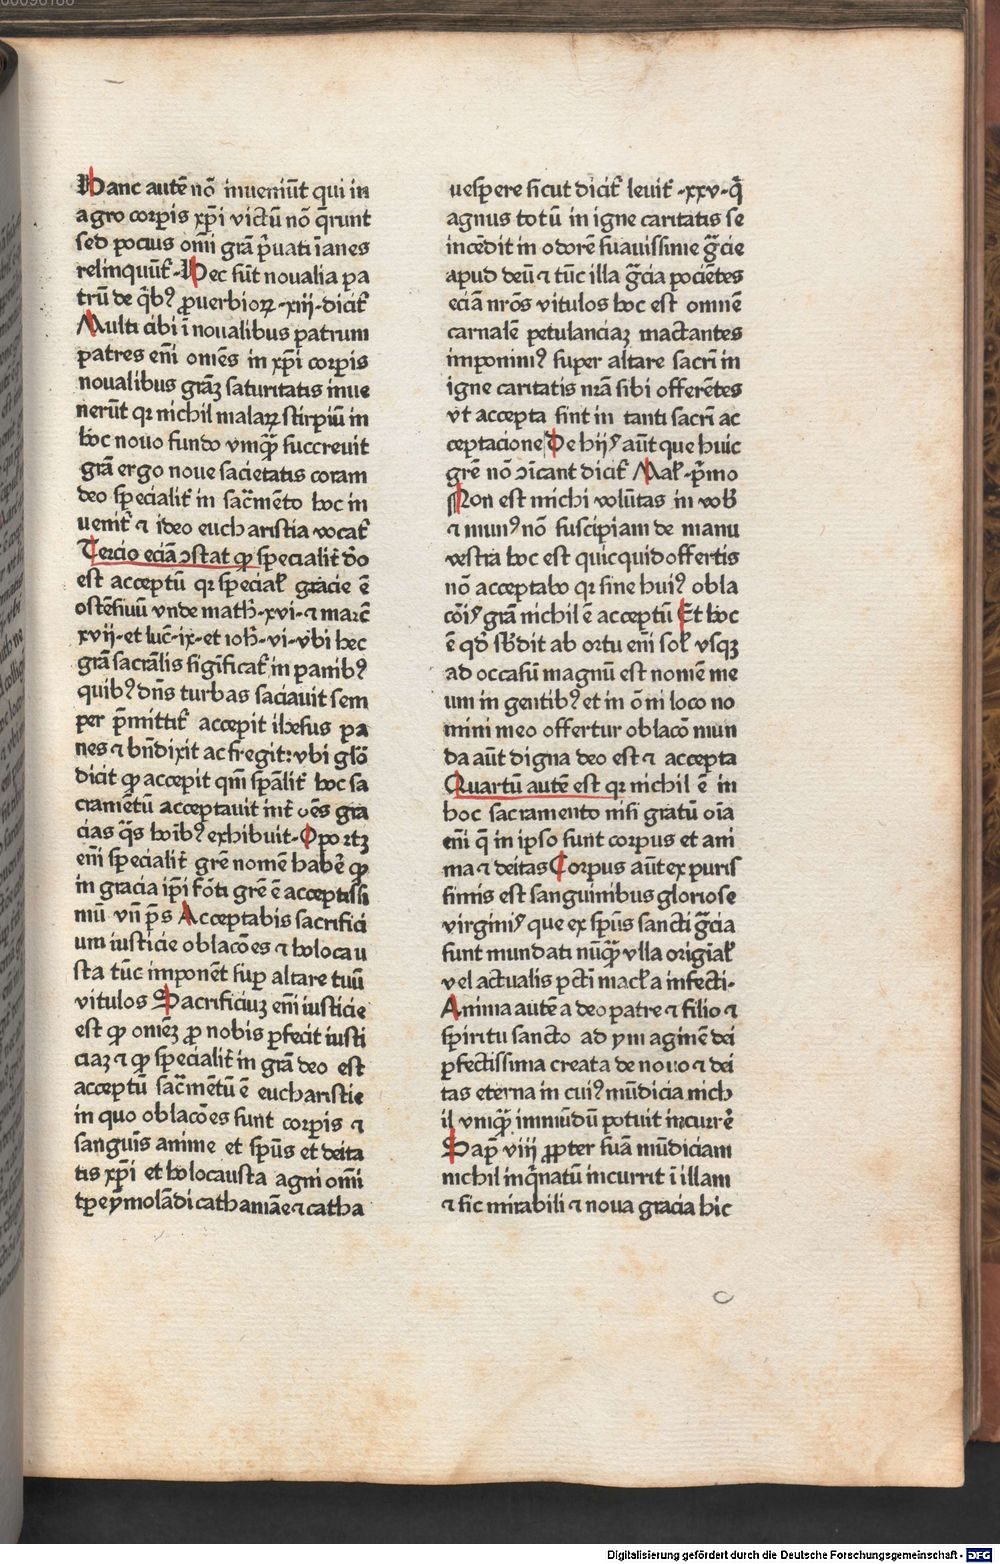 Hanc autē nō inueniūt qui in
agro corꝑis xp̄i victū nō q̄runt
sed pocius om̄i grā p̄uati īanes
relinquūt᷑·Hec sūt noualia pa
trū de qb̄ꝰ ꝓuerbioꝝ·xiij·dicit᷑
Multi cibi ī noualibus patrum
patres em̄i om̄es in xp̄i corꝑis
noualibus grāꝫ saturitatis inue
nerūt qꝛ nichil malaꝝ stirpiū in
hoc nouo fundo vmqͣꝫ succreuit
grā ergo noue sacietatis coram
deo sꝑecialit᷑ in sac̄mēto hoc in
uenit᷑ ⁊ ideo eucharistia vocat᷑
Tercio eciā ↄstat ꝙ sꝑecialit᷑ dō
est acceptū qꝛ special᷑ gracie ē
ostēsiuū vnde math·xvi·⁊ marc̄
xvij·et luc̄·ix·et ioh̄·vi·vbi hec
grā sacrālis significat᷑ in panibꝰ
quibꝰ dn̄s turbas saciauit sem
per p̄mittit᷑ accepit ihesus pa
nes ⁊ bn̄dixit ac fregit: vbi glō
dicit ꝙ accepit qm̄ sꝑalit᷑ hoc sa
cramētū acceptauit int᷑ oēs gra
cias q̄s hoībꝰ exhibuit·Oportꝫ
em̄i sꝑecialit᷑ grē nomē habē ꝙ
in gracia ip̄i fōti grē ē acceptissi
mū vn̄ p̄s Acceptabis sacrifici
um iusticie oblacōes ⁊ holocau
sta tūc imponēt suꝑ altare tuū
vitulos Sacrificiuꝫ em̄i iusticie
est ꝙ om̄eꝫ ꝓ nobis ꝑfecit iusti
ciaꝫ ⁊ ꝙ sꝑecialit᷑ in grā deo est
acceptū sac̄mētū ē eucharistie
in quo oblacōes sunt corꝑis ⁊
sanguis anime et sp̄us et deita
tis xp̄i et holocausta agni om̄i
tꝑe ymolādi cath maīe ⁊ catha
uesꝑere sicut dicit᷑ leuit᷑·xxv·q̄
agnus totū in igne caritatis se
incēdit in odorē suauissime gͣcie
apud deū ⁊ tūc illa gͣcia pociētes
eciā nr̄os vitulos hoc est omnē
carnalē petulanciaꝫ mactantes
imponimꝰ super altare sacri in
igne caritatis nr̄a sibi offerētes
vt accepta sint in tanti sacri ac
ceptacione De hijs aūt que huic
grē nō ↄīcant dicit᷑ Mal᷑·p̄mo
Non est michi volūtas in vob᷑
⁊ munꝰ nō suscipiam de manu
vestra hoc est quicquid offertis
nō acceptabo qꝛ sine huiꝰ obla
cōis grā nichil ē acceptū Et hoc
ē qd̄ sb̄dit ab ortu em̄i sol᷑ vsqꝫ
ad occasū magnū est nomē me
um in gentibꝰ et in ōni loco no
mini meo offertur oblacō mun
da aūt digna deo est ⁊ accepta
Quartū autē est qꝛ nichil ē in
hoc sacramento nisi gratū oīa
em̄i q̄ in ipso sunt corpus et ani
ma ⁊ deitas Corpus aūt ex puris
simis est sanguinibus gloriose
virginis que ex sp̄us sancti gͣcia
sunt mundati nūqͣꝫ vlla origial᷑
vel actualis pct̄i macl᷑a infecti·
Anima autē a deo patre ⁊ filio ⁊
spiritu sancto ad ymaginē dei
ꝑfectissima creata de nouo ⁊ dei
tas eterna in cuiꝰ mūdicia nich
il vmqͣꝫ immūdū potuit incurrē
Sap̄ viij ꝓpter suā mūdiciam
nichil inqͥnatū incurrit ī illam
⁊ sic mirabili ⁊ noua gracia hic
Digitalisierung gefördert durch die Deutsche Forschungsgemeinschaft - DFG